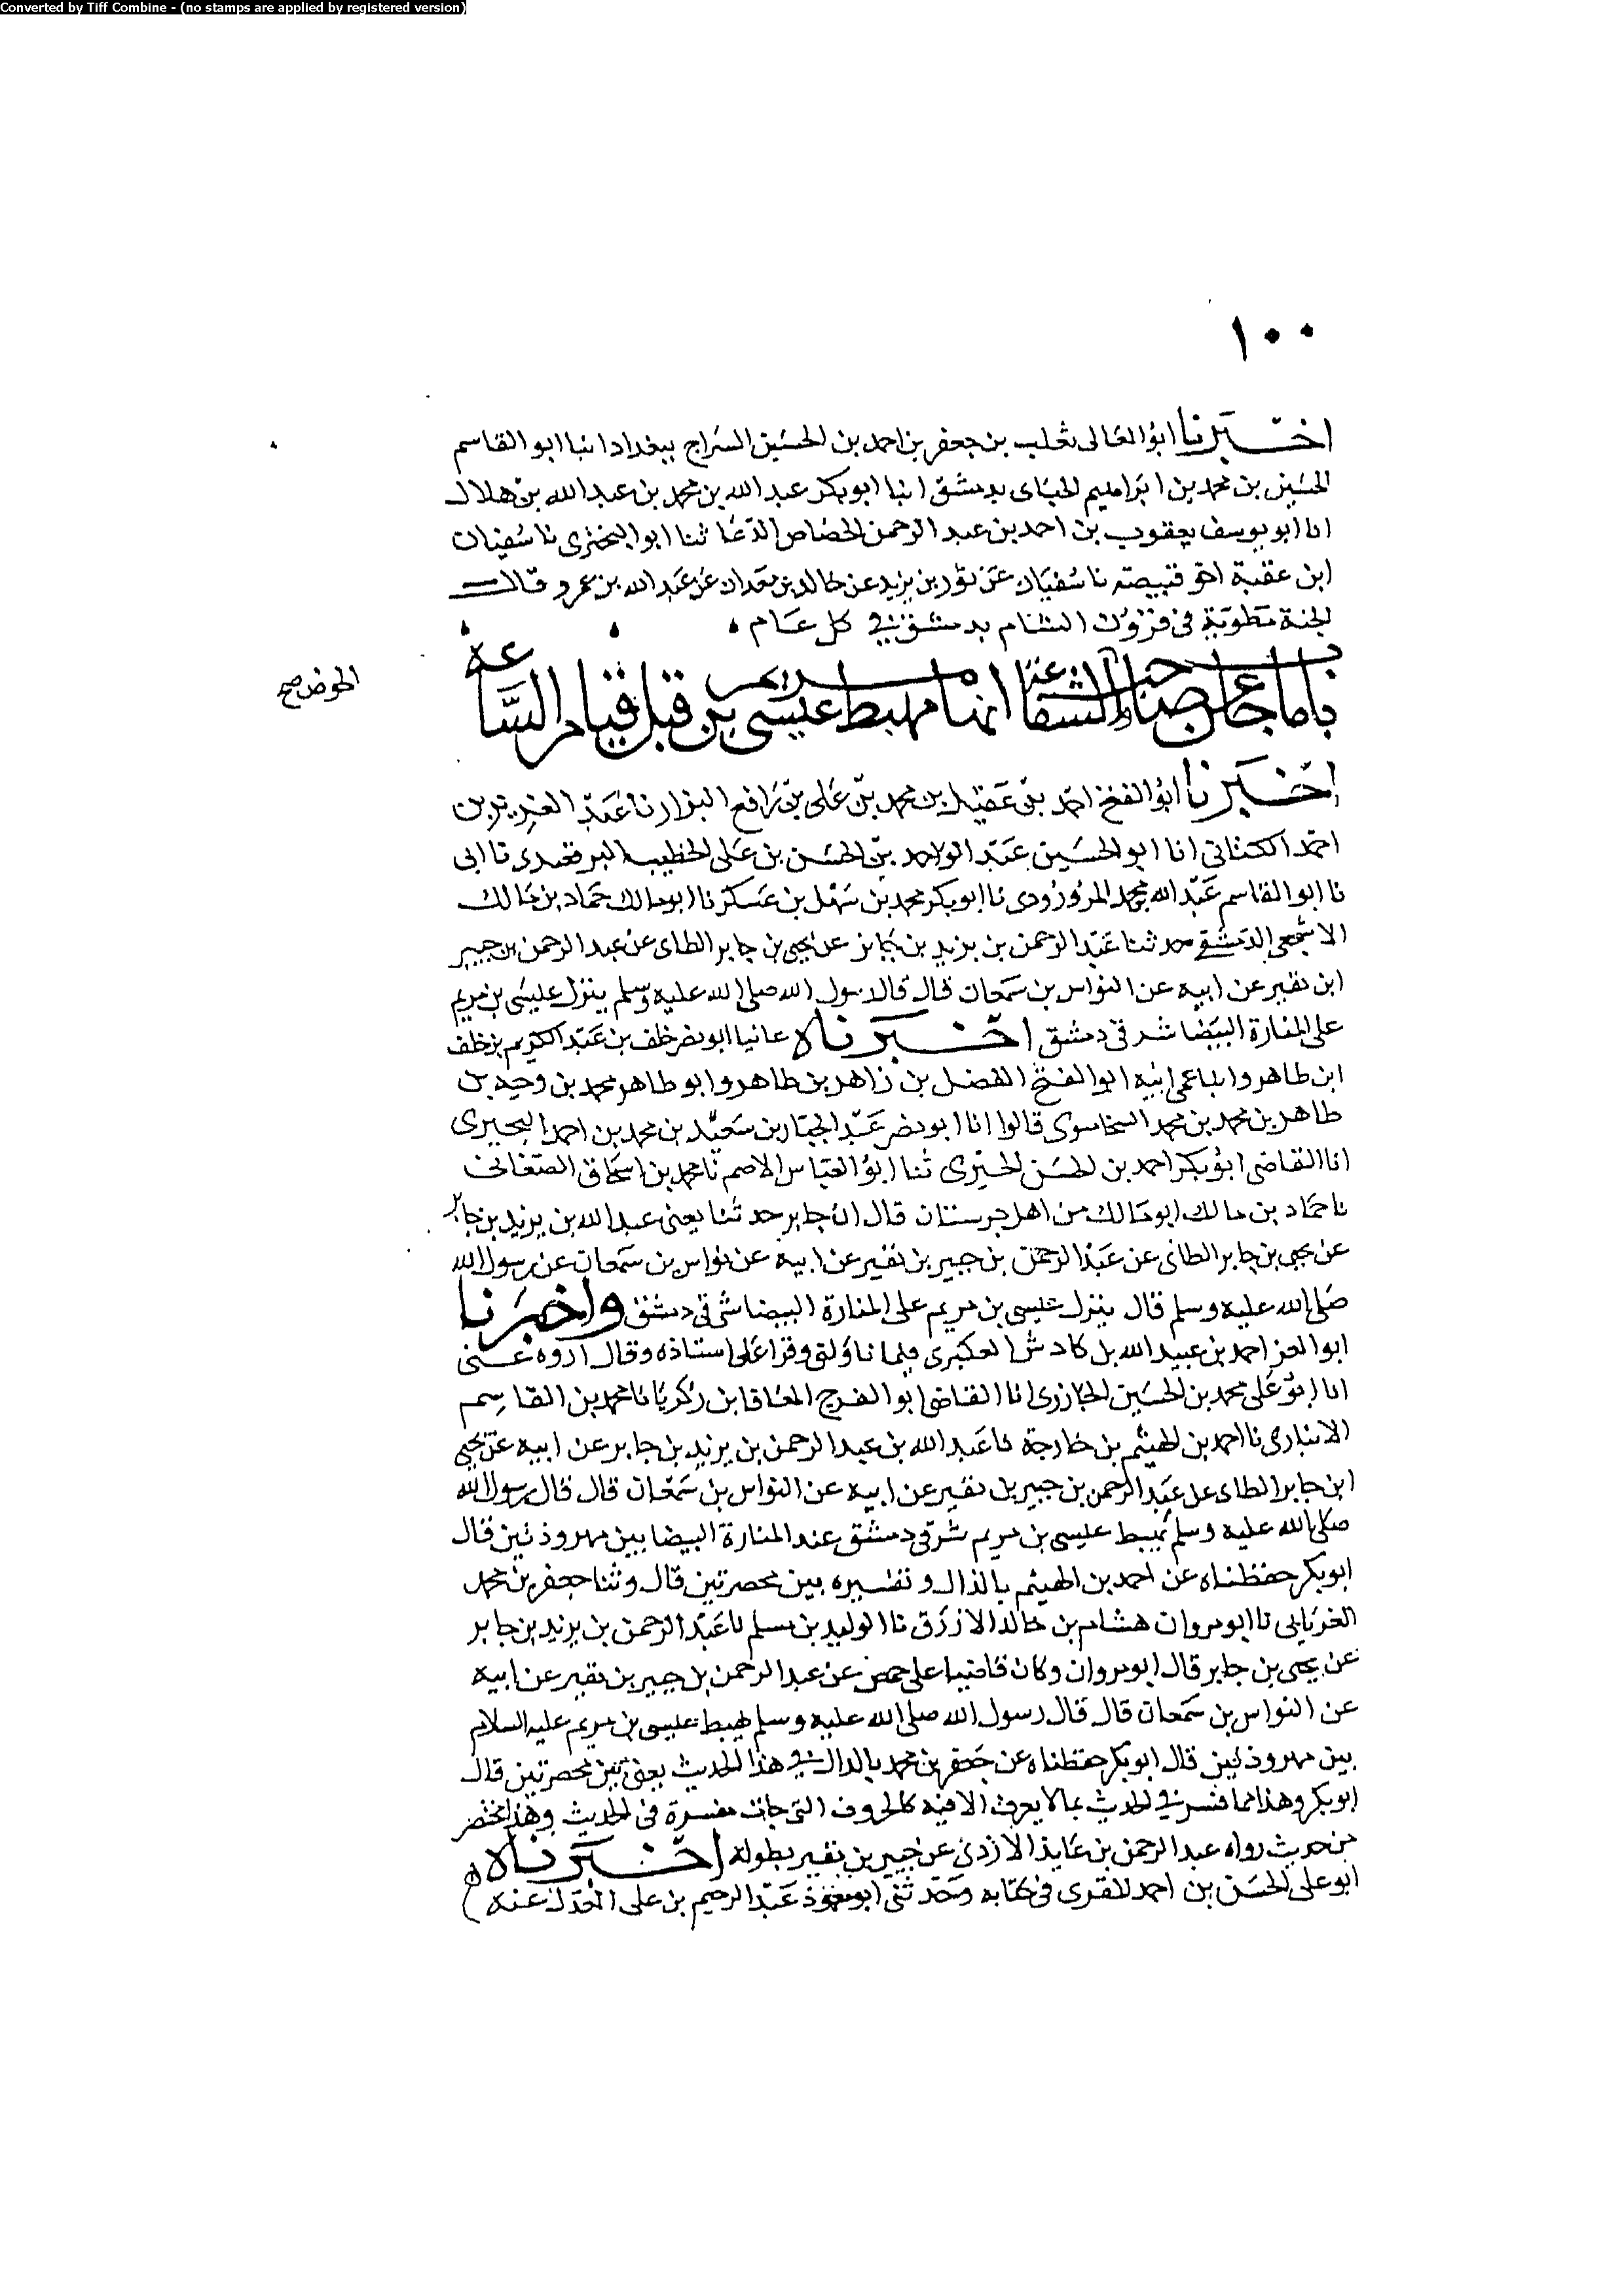 Converted by Tiff Combine - (no stamps are applied by registered version)
١٠٠
اخبرنا ابو المعالى ثعلب بن جعفر بن احمد بن الحسين السراج ببغداد انبا ابو القاسم
الحسين بن محمد بن ابراهيم الحناى بدمشق انبا ابو بكر عبد الله بن محمد بن عبد الله بن هلال
انا ابو يوسف يعقوب بن احمد بن عبد الرحمن الجصاص الدعا ثنا ابو البخترى نا سفيان
ابن عقبة اخو قبيصة نا سفيان عن ثور بن يزيد عن خالد بن معدان عن عبد الله بن عمرو قال
الجنة مطوية فى قرون الشام بدمشق فى كل عام
باب ما جا عن صاحب الحوض والشفاعة انها مهبط عيسى بن مريم قبل قيام الساعة
الحوض صح
اخبرنا ابو الفتح احمد بن عقيل بن محمد بن على بن رافع البزار نا عبد العزيز بن
احمد الكتانى انا ابو الحسين عبد الواحد بن الحسن بن على الخطيب البرقعيدى نا ابى
نا ابو القاسم عبد الله بن محمد المروروذى نا ابو بكر محمد بن سهل بن عسكر نا ابو مالك حماد بن مالك
الاشجعى الدمشقى حدثنا عبد الرحمن بن يزيد بن جابر عن يحيى بن جابر الطاى عن عبد الرحمن بن جبير
ابن نفير عن ابيه عن النواس بن سمعان قال قال رسول الله صلى الله عليه وسلم ينزل عيسى بن مريم
على المنارة البيضا شرقى دمشق اخبرناه عاليا ابو نصر خلف بن عبد الكريم بن خلف
ابن طاهر وابنا عمى ابيه ابو الفتح الفضل بن زاهر بن طاهر وابو طاهر محمد بن وجيه بن
طاهر بن محمد بن محمد الشحاميون قالوا انا ابو نصر عبد الجبار بن سعيد بن محمد بن احمد البحيرى
انا القاضى ابو بكر احمد بن الحسن الحيرى ثنا ابو العباس الاصم نا محمد بن اسحاق الصغانى
نا حماد بن مالك ابو مالك من اهل حرستان قال ان جابر حدثنا يعنى عبد الله بن يزيد بن جابر
عن يحيى بن جابر الطائى عن عبد الرحمن بن جبير بن نفير عن ابيه عن نواس بن سمعان عن رسول الله
صلى الله عليه وسلم قال ينزل عيسى بن مريم على المنارة البيضا شرقى دمشق واخبرنا
ابو العز احمد بن عبيد الله بن كادش العكبرى فيما ناولنى وقرا على استاذه وقال اروه عنى
انا ابو على محمد بن الحسين الجازرى انا القاضى ابو الفرج المعافا بن زكريا نا محمد بن القاسم
الانبارى نا احمد بن الهيثم بن خارجة نا عبد الله بن عبد الرحمن بن يزيد بن جابر عن ابيه عن يحيى
ابن جابر الطاى عن عبد الرحمن بن جبير بن نفير عن ابيه عن النواس بن سمعان قال قال رسول الله
صلى الله عليه وسلم يهبط عيسى بن مريم شرقى دمشق عند المنارة البيضا بين مهروذتين قال
ابو بكر حفظناه عن احمد بن الهيثم بالذال وتفسيره بين ممصرتين قال وثنا جعفر بن محمد
الفريابى نا ابو مروان هشام بن خالد الازرق نا الوليد بن مسلم نا عبد الرحمن بن يزيد بن جابر
عن يحيى بن جابر قال ابو مروان وكان قاضيا على حمص عن عبد الرحمن بن جبير بن نفير عن ابيه
عن النواس بن سمعان قال قال رسول الله صلى الله عليه وسلم يهبط عيسى بن مريم عليه السلام
بين مهروذتين قال ابو بكر حفظناه عن جعفر بن محمد بالدال فى هذا الحديث يعنى بين ممصرتين قال
ابو بكر وهذا مما فسر فى الحديث بما لا يعرف الا فيه كالحروف التى جات مفسرة فى الحديث وهذا مختصر
من حديث رواه عبد الرحمن بن عايذ الازدى عن جبير بن نفير بطوله اخبرناه
ابو على الحسن بن احمد المقرى فى كتابه وحدثنى ابو مسعود عبد الرحيم بن على المعدل عنه